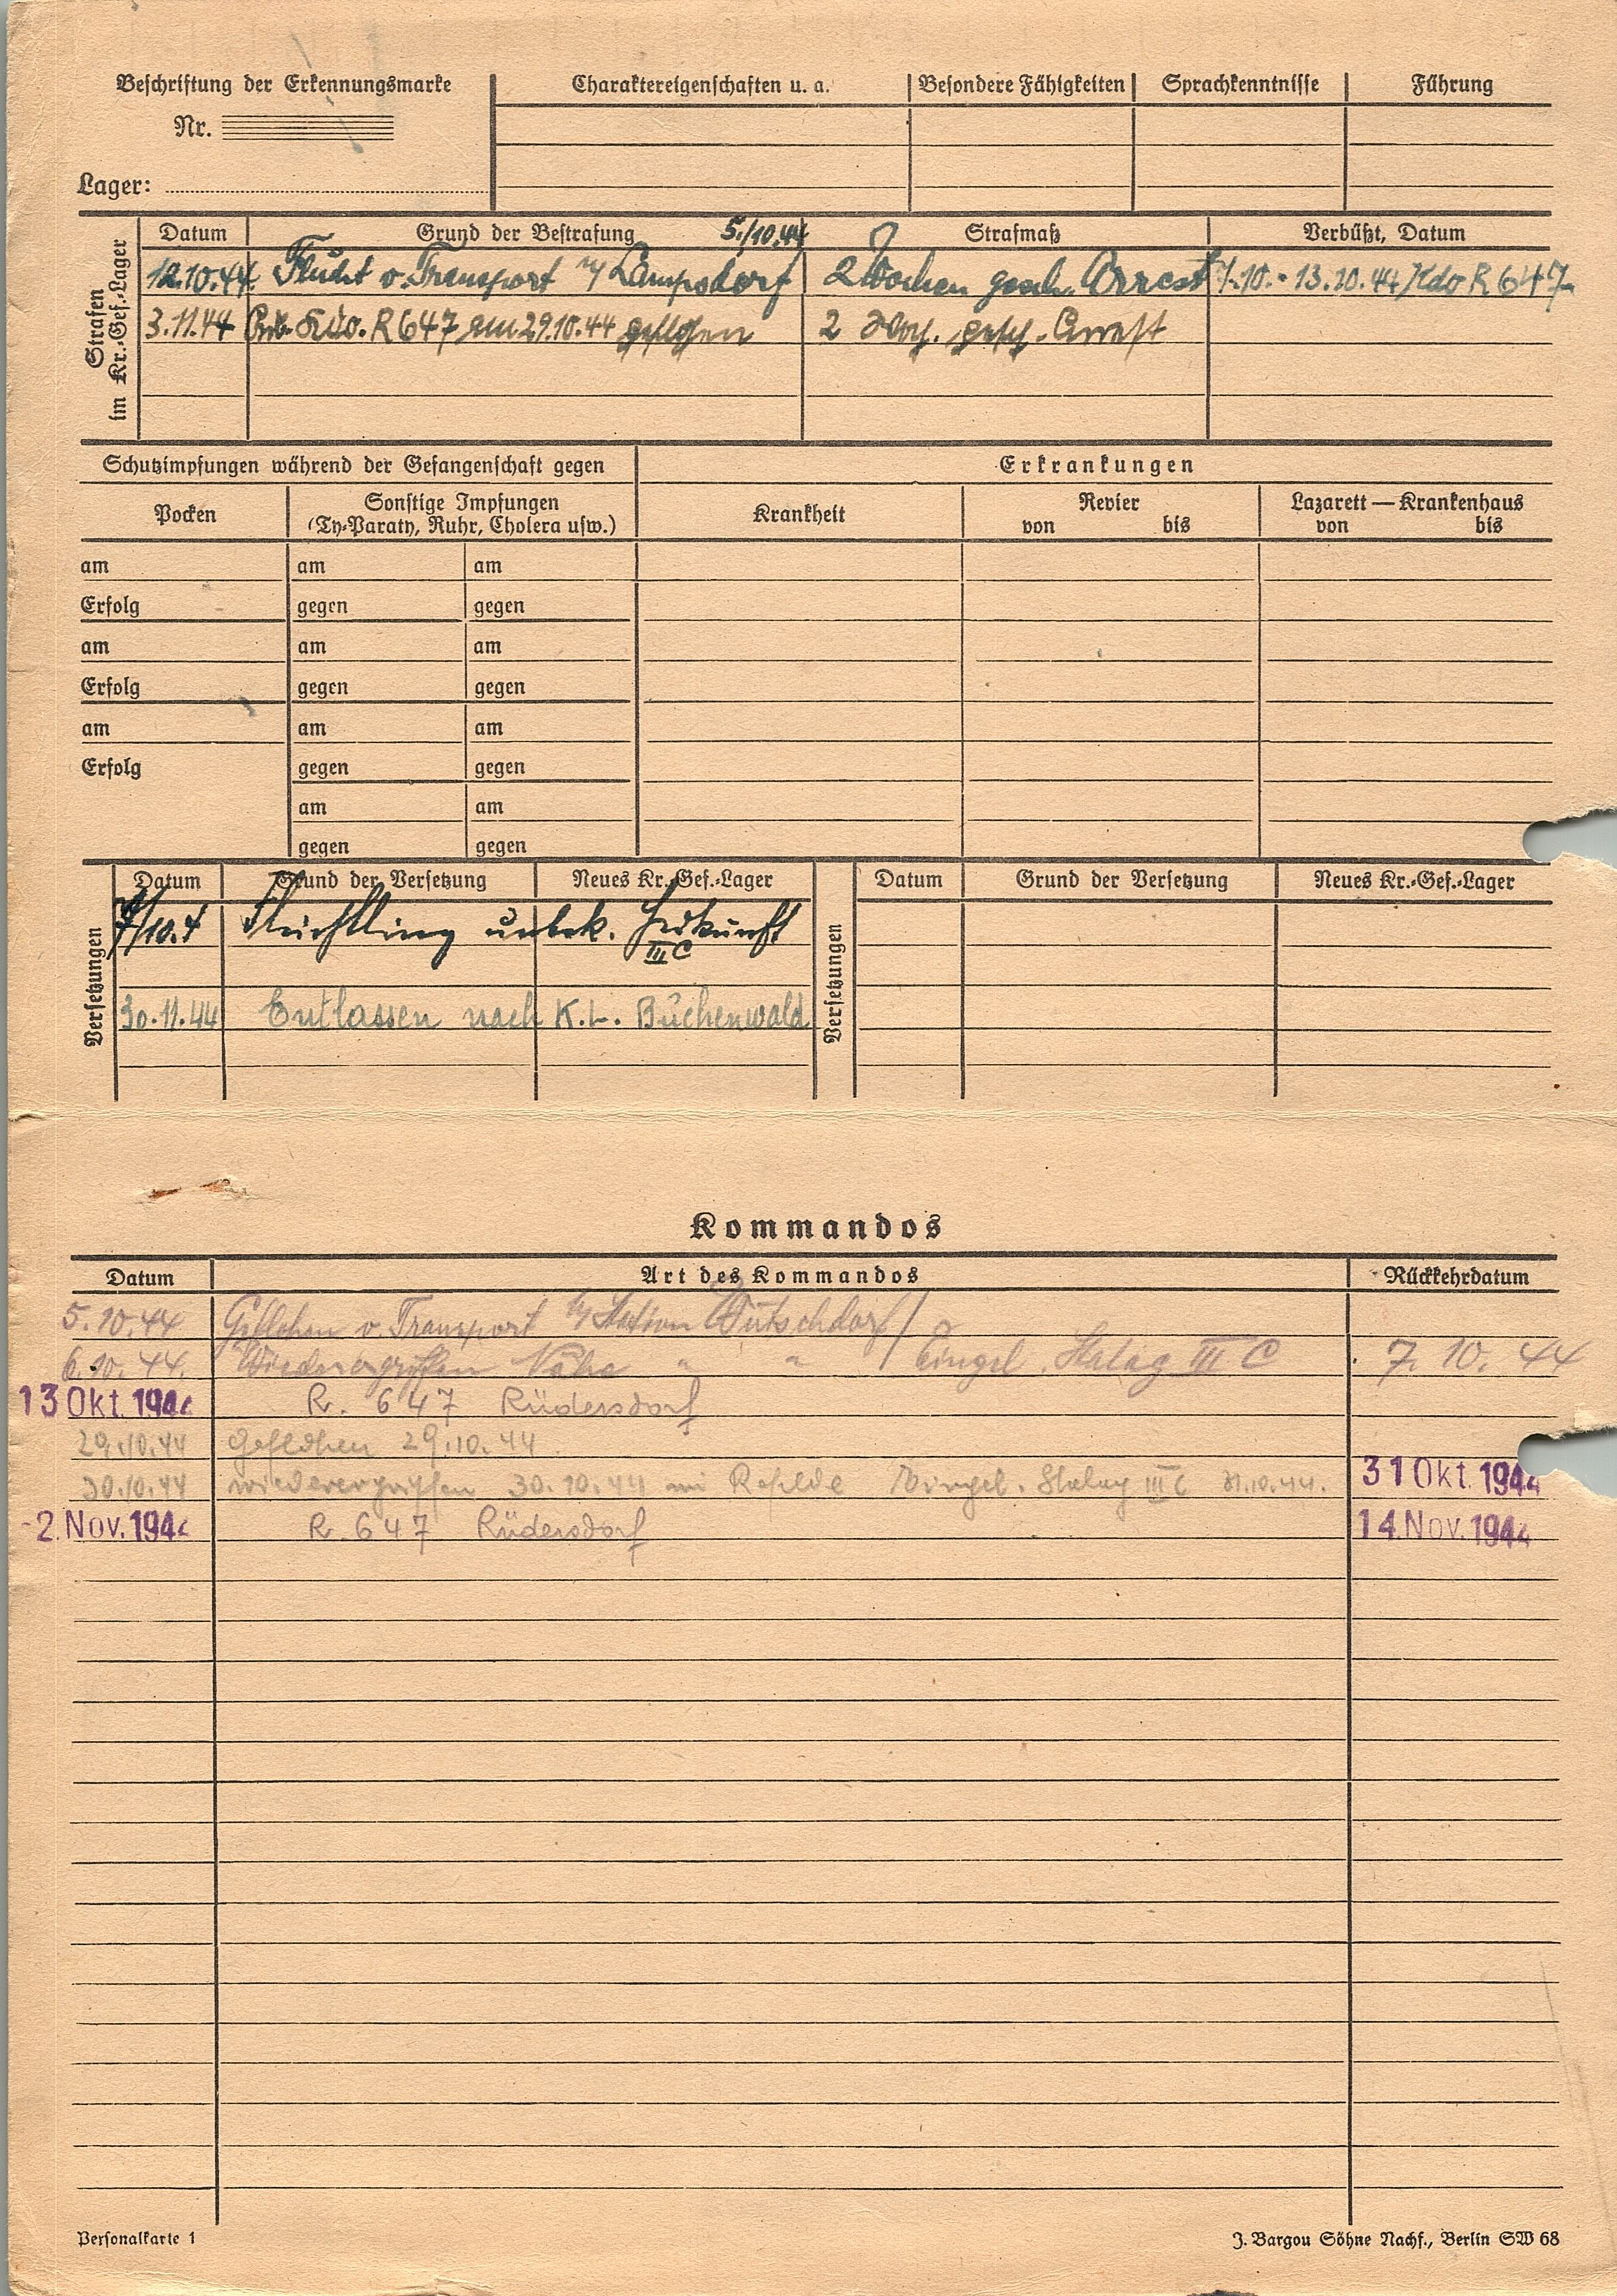 Beschriftung der Erkennungsmarke
Nr.
Lager:
Charaktereigenschaften u. a.
Besondere Fähigkeiten
Sprachkenntnisse
Führung
Strafen im Kr.-Gef.-Lager
Datum Grund der Bestrafung 5./10.44 Strafmaß Verbüßt, Datum
12.10.44. Flucht v. Transport Lampsdorf 2 Wochen gesch. Arrest .10. - 13.10.44 Kdo R 647
3.11.44 Kdo. R 647 am 29.10.44 geflohen 2 gesch. Arrest
Schutzimpfungen während der Gefangenschaft gegen
Erkrankungen
Pocken
Sonstige Impfungen
(Ty-Paraty, Ruhr, Cholera usw.)
Krankheit
Revier
von bis
Lazarett — Krankenhaus
von bis
am am am
Erfolg gegen gegen
am am am
Erfolg gegen gegen
am am am
Erfolg gegen gegen
am am
gegen gegen
Versetzungen
Datum Grund der Versetzung Neues Kr.-Gef.-Lager
7/10.4 Flüchtling unbek. Herkunft
III C
30.11.44 Entlassen nach K.L. Buchenwald
Versetzungen
Datum Grund der Versetzung Neues Kr.-Gef.-Lager
Kommandos
Datum Art des Kommandos Rückkehrdatum
5.10.44 Geflohen v. Transport Station
6.10.44. Wiederergriffen Nähe " " Eingel. Stalag III C 7. 10. 44
13 Okt. 1944 R. 647 Rüdersdorf
29.10.44 Geflohen 29.10.44.
30.10.44 wiederergriffen 30.10.44 in Eingel. Stalag III C 31.10.44. 31 Okt. 1944
-2. Nov. 1944 R. 647 Rüdersdorf 14. Nov. 1944
Personalkarte 1
J. Bargou Söhne Nachf., Berlin SW 68